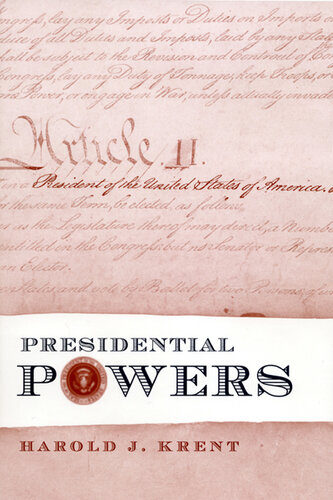 ongress, lay any Imposts or Duties on Imports
duce of all Duties and Imposts, laid by any State
hall be subject to the Revision and Controul of Con
Congress, lay any Duty of Tonnage, keep Troops, or
Power, or engage in War, unless actually invade
Article II.
in a President of the United States of America.
r the same Term, be elected, as follow
as the Legislature thereof may direct, a Numbe
entitled in the Congress: but no Senator or Repre
an Elector.
States and vote by Ballot for two Persons, of w
PRESIDENTIAL
POWERS
HAROLD J. KRENT